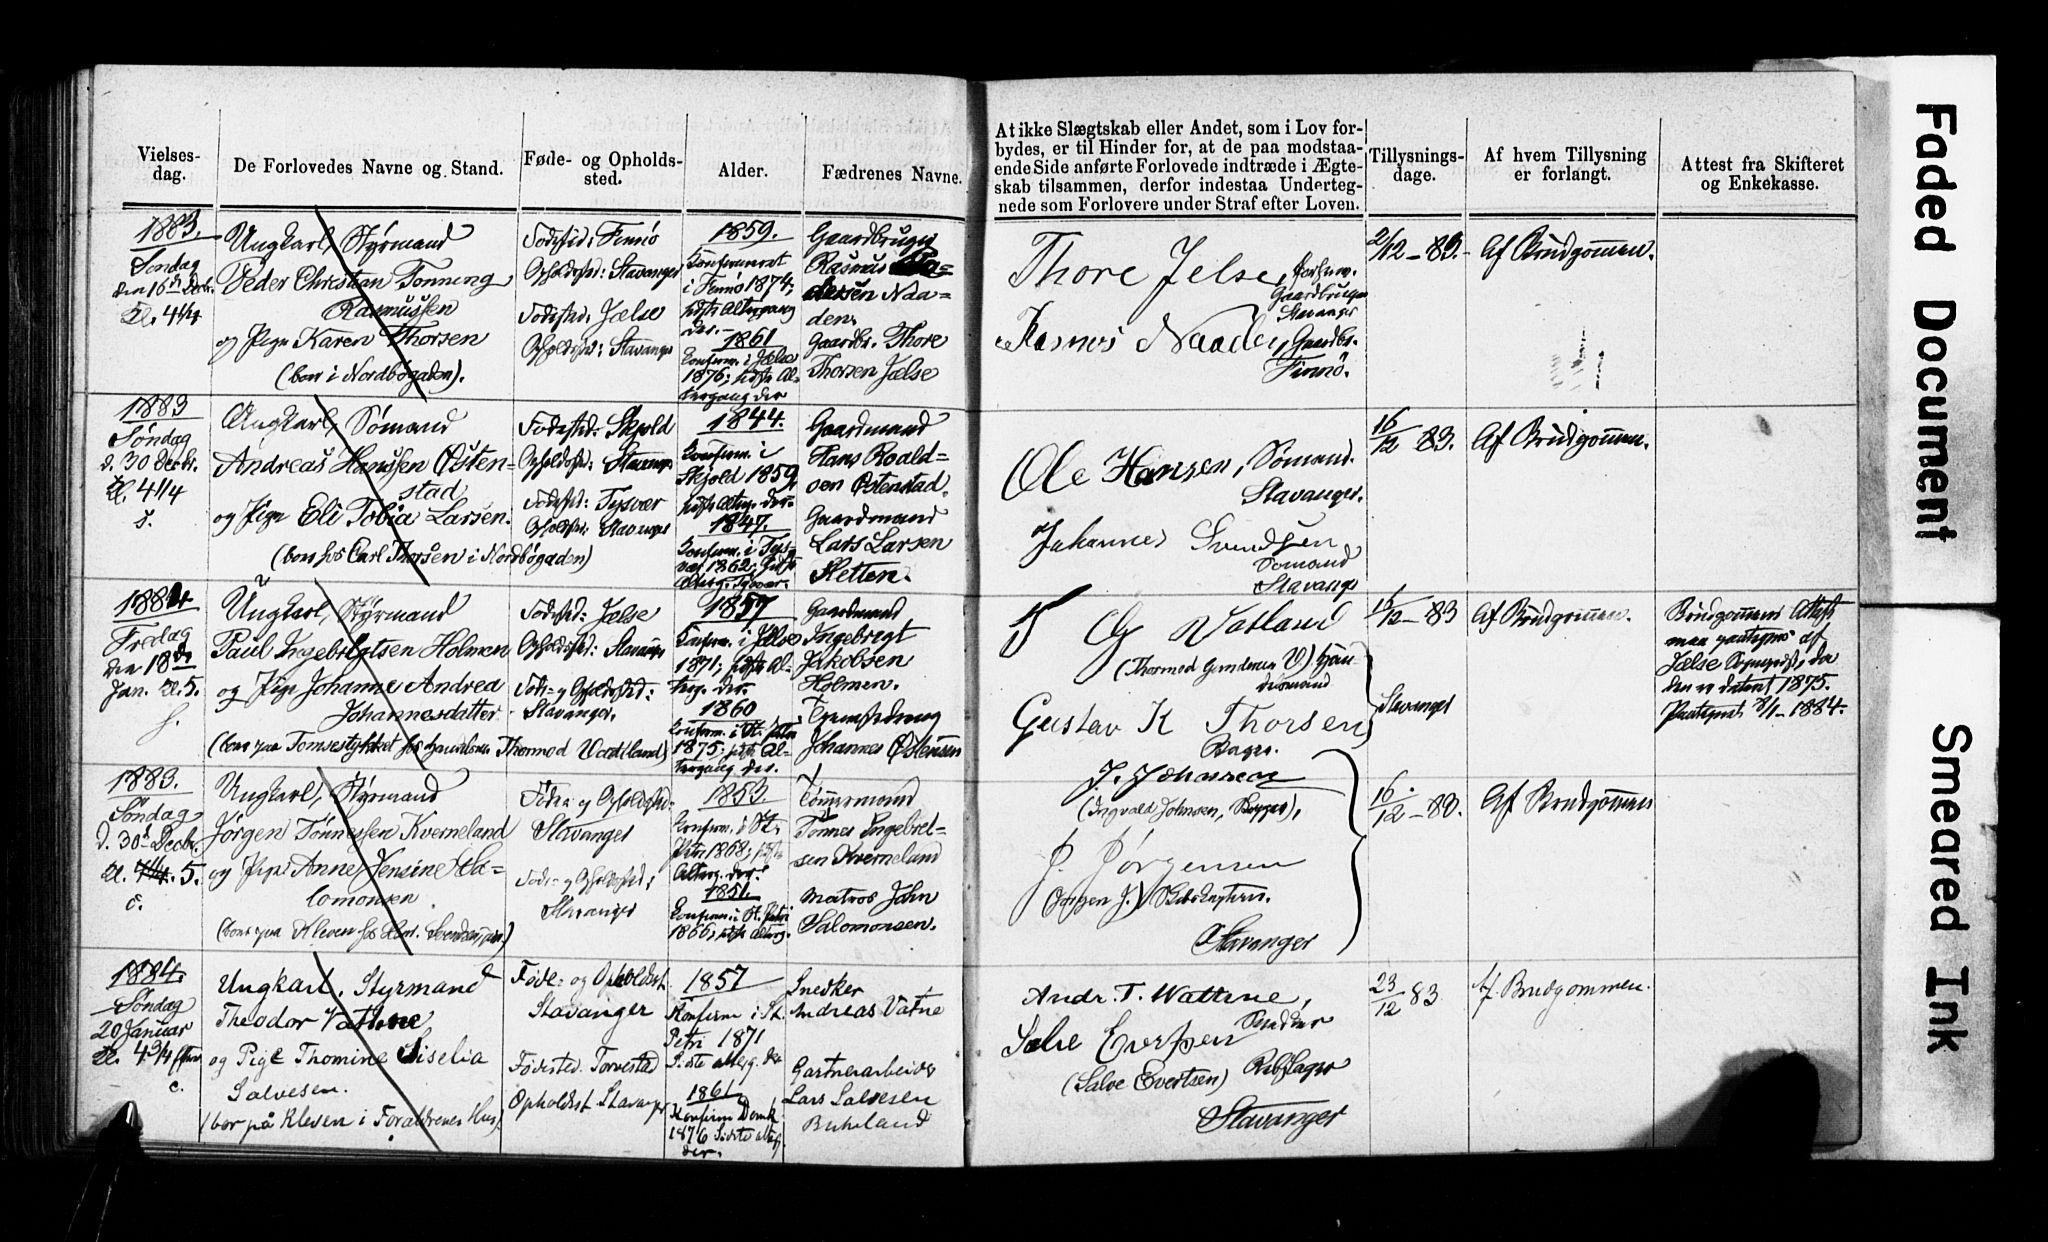 Vielses-
dag.
De Forlovedes Navne og Stand.
Føde- og Opholds-
sted.
Alder.
Fædrenes Navne.
At ikke Slægtskab eller Andet, som i Lov for-
bydes, er til Hinder for, at de paa modstaa-
ende Side anførte Forlovede indtræde i Ægte-
skab tilsammen, derfor indestaa Underteg-
nede som Forlovere under Straf efter Loven.
Tillysnings-
dage.
Af hvem Tillysning
er forlangt.
Attest fra Skifteret
og Enkekasse.
1883.
Søndag
den 16de Decbr.
Kl. 4 1/4
Ungkarl, Styrmand
Peder Christian Tonning
Rasmussen
og Pige Karen Thorsen
(bor i Nordbøgaden).
Fødested: Finnø
Opholdssted: Stavanger
Fødested: Jælse
Opholdssted: Stavanger
1859.
Konfirmeret
i Finnø 1874;
sidste Altergang
der.
1861
Konfirm. i Jælse
1876; sidste Al-
tergang der
Gaardbruger
Rasmus
Naa-
den.
Gaardbr. Thore
Thorsen Jælse
Thore Jelse, forhenv.
Gaardbruger
Stavanger
Rasmus Naaden, Gaardbr.
Finnø.
2/12 - 83.
Af Brudgommen.
1883
Søndag
d. 30 Decbr.
Kl. 4 1/4
s.
Ungkarl, Sømand
Andreas Hanssen Østen-
stad
og Pige Eli Tobia Larsen.
(bor hos Carl Thorsen i Nordbøgaden)
Fødested: Skjold
Opholdssted: Stavanger
Fødested: Tysvær
Opholdssted: Stavanger
1844.
Konfirm. i
Skjold 1859,
sidste Alterg. der.
1847.
Konfirm. i Tys-
vær 1862; sidste
Alterg. Tysvær.
Gaardmand
Hans Roald-
sen Østenstad.
Gaardmand
Lars Larsen
Sletten.
Ole Hansen, Sømand.
Stavanger.
Johannes Svendsen
Sømand
Stavanger
16/12 - 83.
Af Brudgommen.
1884
Fredag
den 18de
Jan. Kl. 5.
Ungkarl, Styrmand
Paul Ingebrigtsen Holmen
og Pige Johanne Andrea
Johannesdatter
Fødested: Jælse
Opholdssted: Stavanger
Føde- og Opholdssted:
Stavanger.
1857
Konfirm. i Jælse
1871; sidste Al-
terg. der.
1860
Konfirm. i St. Petri
1875; sidste Al-
tergang der.
Gaardmand
Ingebrigt
Jakobsen
Holmen.
Johannes Østensen
Vatland
Gustav K Thorsen
Bager.
Stavanger
15/12 - 83
Af Brudgommen.
Brudgommens Attest
maa paategnes af
Jælse Sogneprest, da
den er dateret 1875.
Paategnet 8/1 - 1884.
1883.
Søndag
d. 30te Decbr.
Kl. 4 1/4. 5.
c.
Ungkarl, Styrmand
Jørgen Tønnessen Kverneland
og Pige Anne Jensine Sa-
lomonsen.
Føde- og Opholdssted:
Stavanger
Føde- og Opholdssted:
Stavanger
1853
Konfirm. i St.
Petri 1868; sidste
Alterg. der.
1851.
Konfirm. i St. Petri
1866; sidste Alterg.
Tømmermand
Tønnes Ingebret-
sen Kverneland
Matros John
Salomonsen.
J. Johnsen
(Ingvald Johnsen, Skipper),
J. Jørgensen
Stavanger
16/12 - 83.
Af Brudgommen
1884.
Søndag
20 Januar
Kl. 4 3/4
c.
Ungkarl. Styrmand
Theodor Vathne
og Pige Thomine Siselia
Salvesen.
(bor på Kleven i Forældrenes Hus)
Føde- og Opholdsst.
Stavanger
Fødested. Torvestad
Opholdsst. Stavanger
1857
Konfirm i St.
Petri 1871
Sidste alterg. der
1861
Konfirm Domk
1876 Sidste alterg
der.
Snedker
Andreas Vatne
Gartnerarbeider
Lars Salvesen
Birkeland
Andr. T. Wattne,
Snedker
Salve Evertsen
(Salve Evertsen) Rebslager
Stavanger
23/12 83
Af Brudgommen.
Faded Document
Smeared Ink